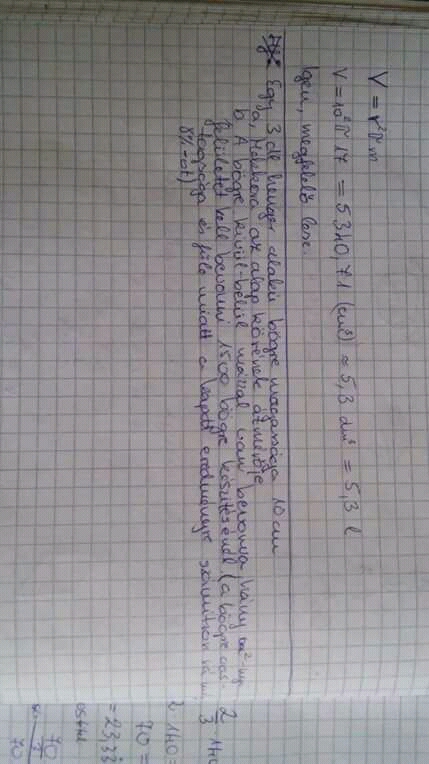 V = r²π m
V = 10²π 17 = 5340,71 (cm³) ≈ 5,3 dm³ = 5,3 l
Igen, megfelelő lesz.
Egy 3 dl henger alakú bögre magassága 10 cm
a, Mekkora az alap körének átmérője
b. A bögre kívül-belül mázzal van bevonva hány m²-nyi
felületet kell bevonni 1500 bögre készítésénél (a bögre vas-
tagsága és füle miatt a kapott eredményre számítson rá
8%-ot)
2/3 · 140
2 · 140 =
70 =
= 23,33
70